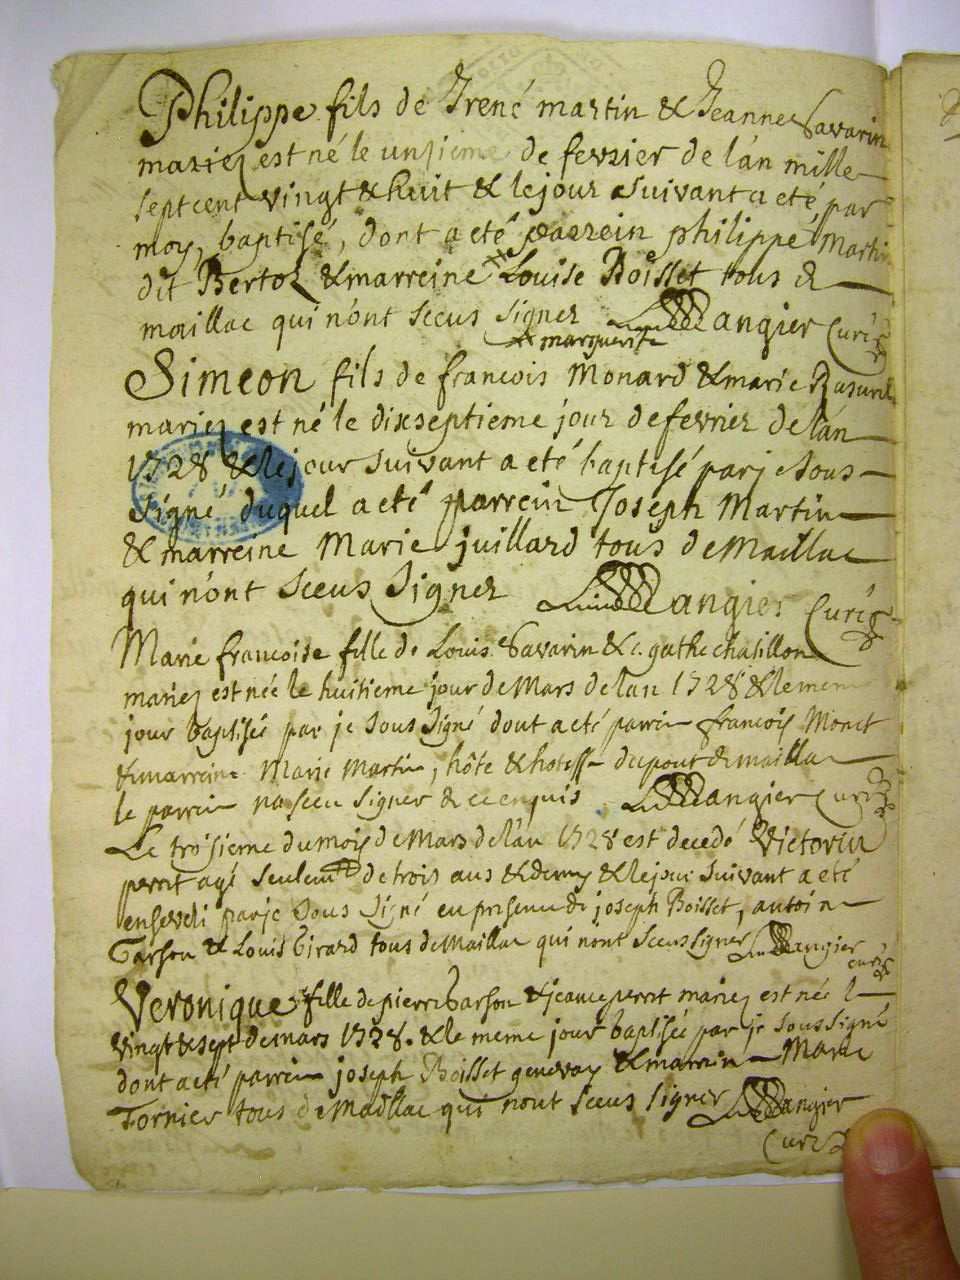 Philippe fils de Irené martin & Jeanne Savarin
mariez est né le unsieme de fevrier de l'án mille
sept cent vingt & huit & le jour suivant a eté par
moy baptisé, dont a eté parrein philippe Martin
dit Bertol & marreine Louise Boisset tous de
maillac qui n'ónt sceus signer Langier Curé
marguerite
Simeon fils de francois Monard & marie
mariez est né le dixseptieme jour de fevrier de l'án
1728 & le jour suivant a eté baptisé par je sous
signé duquel a eté parrein Joseph Martin
& marreine Marie juillard tous de Maillac
qui n'ónt sceus signer Langier Curé
Marie francoise fille de Louis Savarin & agathe chatillon
mariez est née le huitieme jour de Mars de l'an 1728 & le mem
jour baptisée par je sous signé dont a eté parrin francois Monet
& marreine Marie Martin, hôte & hotesse du pont de maillac
le parrin na sceu signer de ce enquis Langier Curé
Le troisieme du mois de Mars de l'an 1728 est decedé Victorin
perrit agé seulem de trois ans & demy & le jour suivant a eté
enseveli par je sous signé en presence de joseph Boisset, antoine
Garson & Louis Girard tous de Maillac qui n'ont sceus signer Langier
curé
Veronique fille de pierre Garson & jeanne perrit mariez est née le
vingt & sept de mars 1728. & le meme jour baptisée par je sous signé
dont a eté parrein joseph Boisset genevoy & marrein Marie
Tornier tous de Maillac qui n'ont sceus signer Langier
Curé